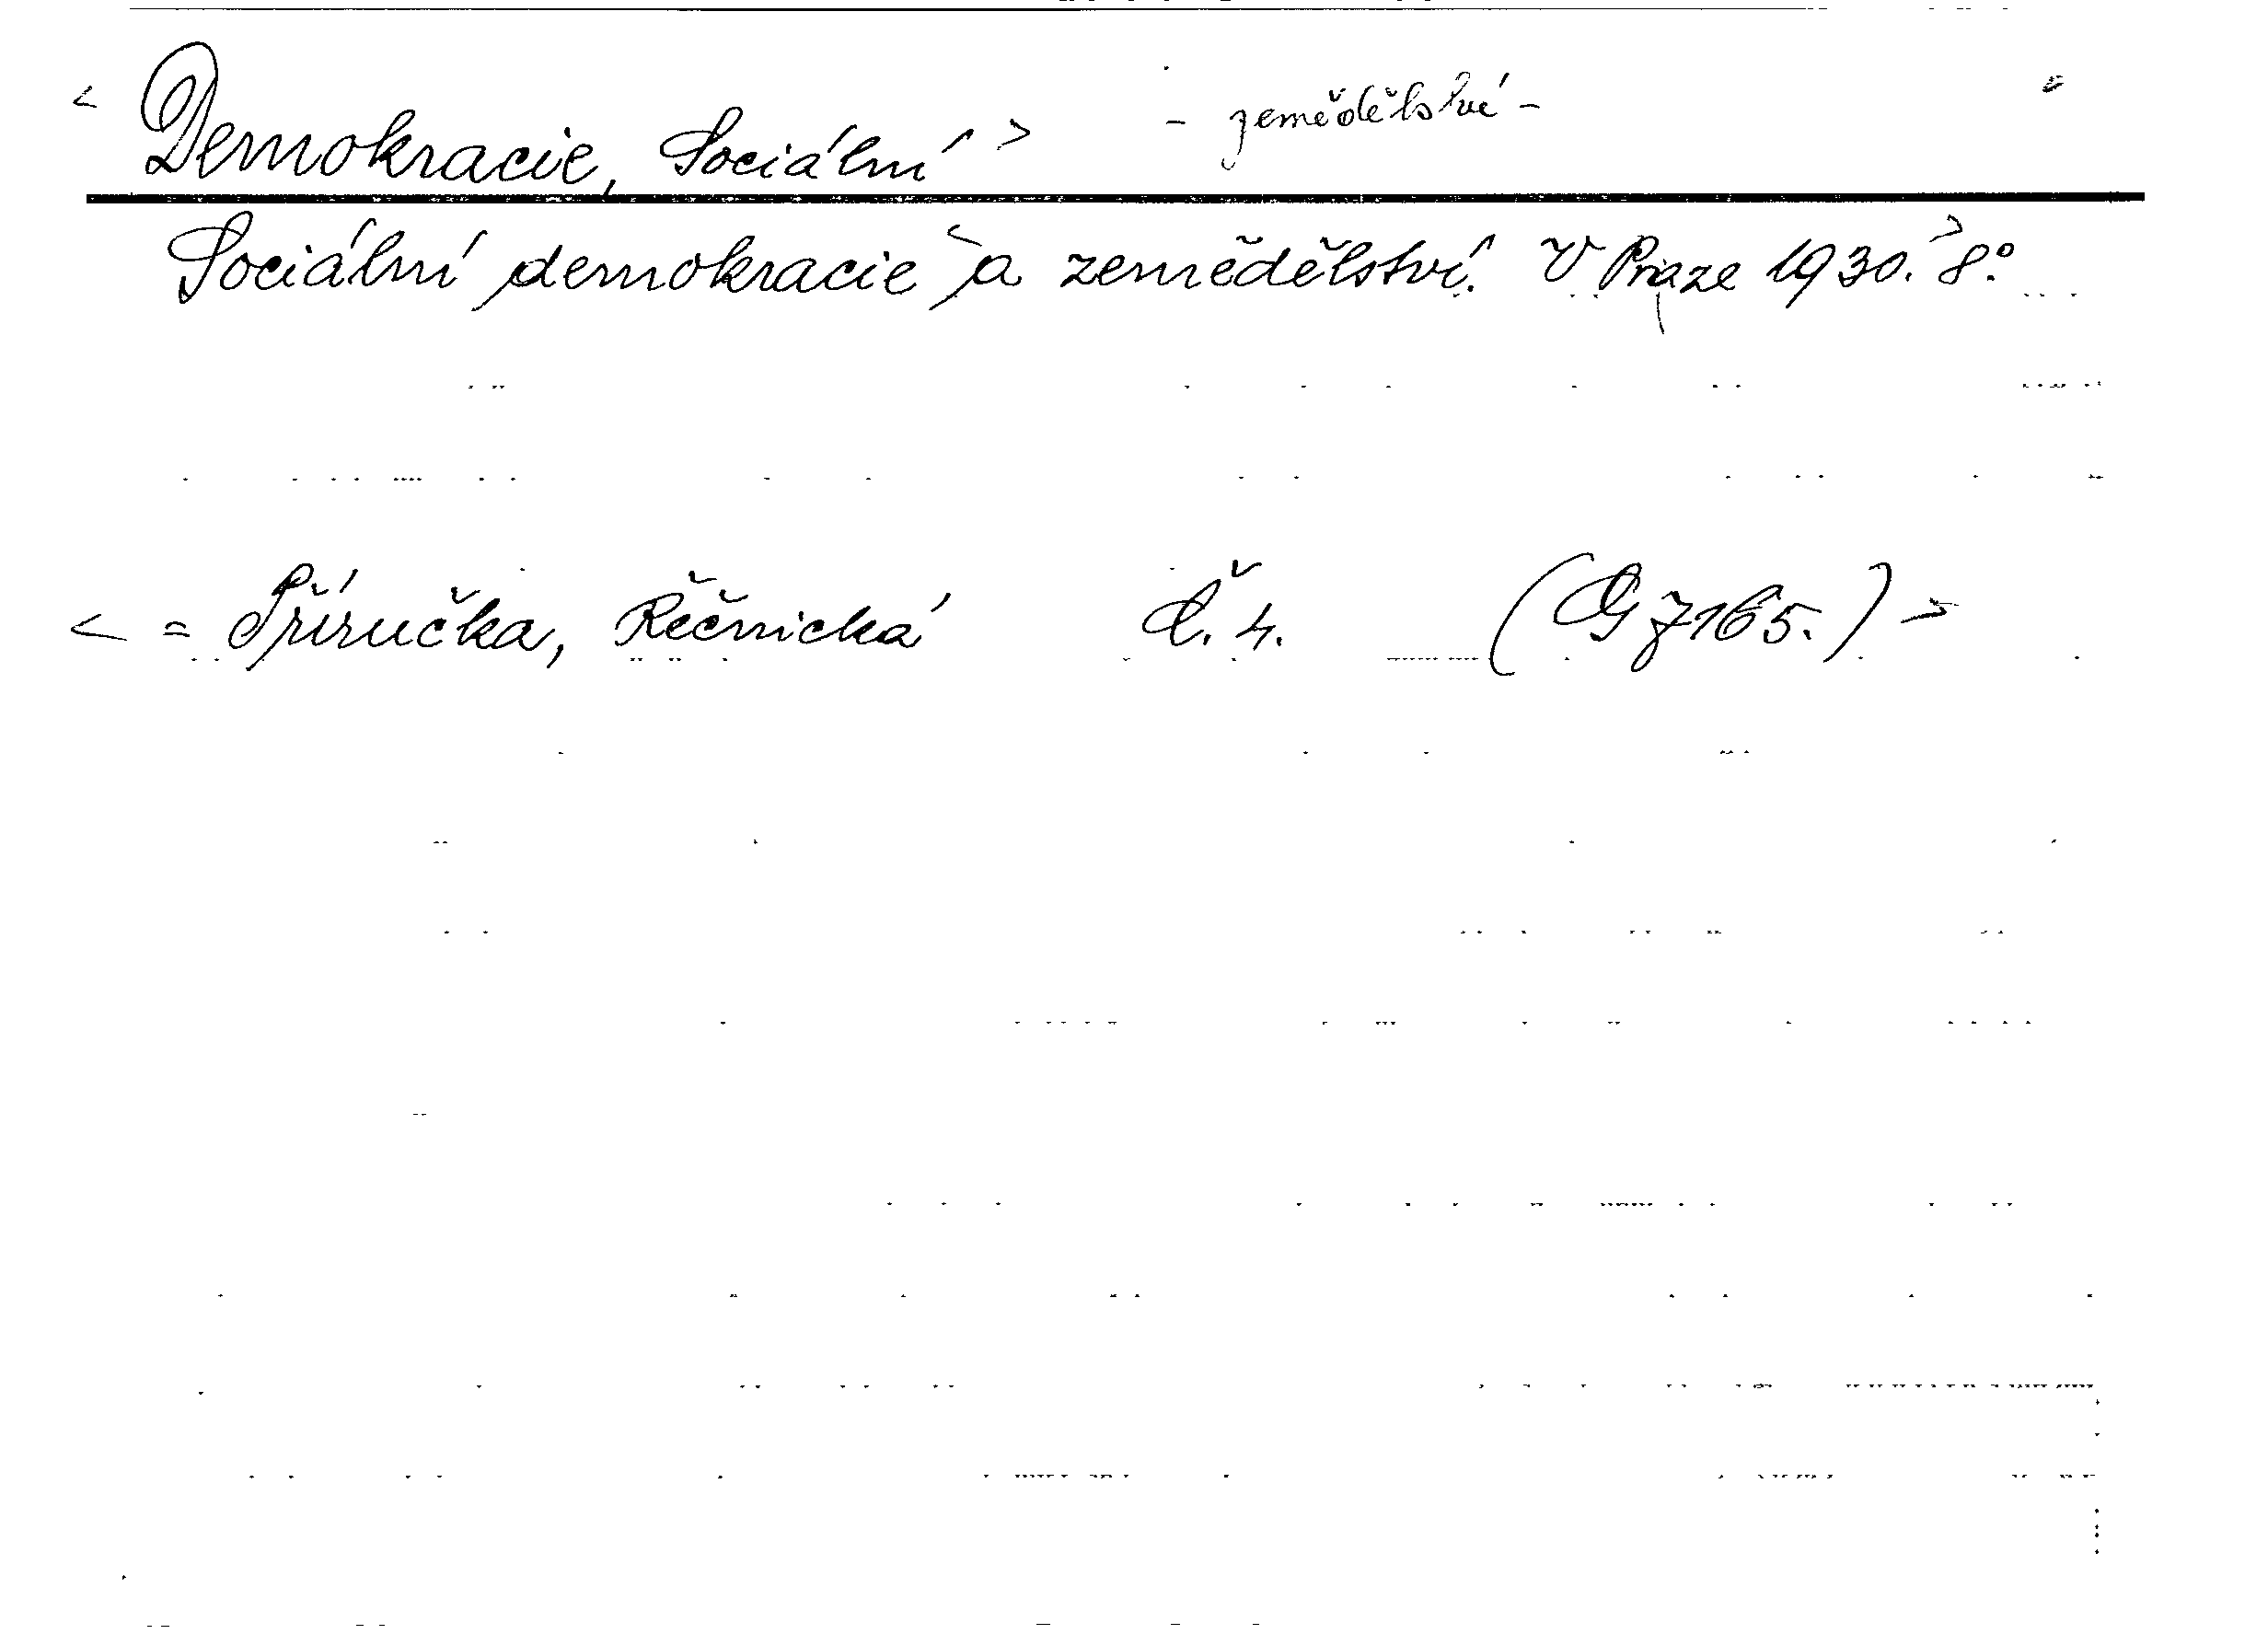 < Demokracie, Sociální > - zemědělství -
Sociální demokracie < a zemědělství. V Praze 1930. > 8°.
< = Příručka, Řečnická č. 4. (G 7165.) >